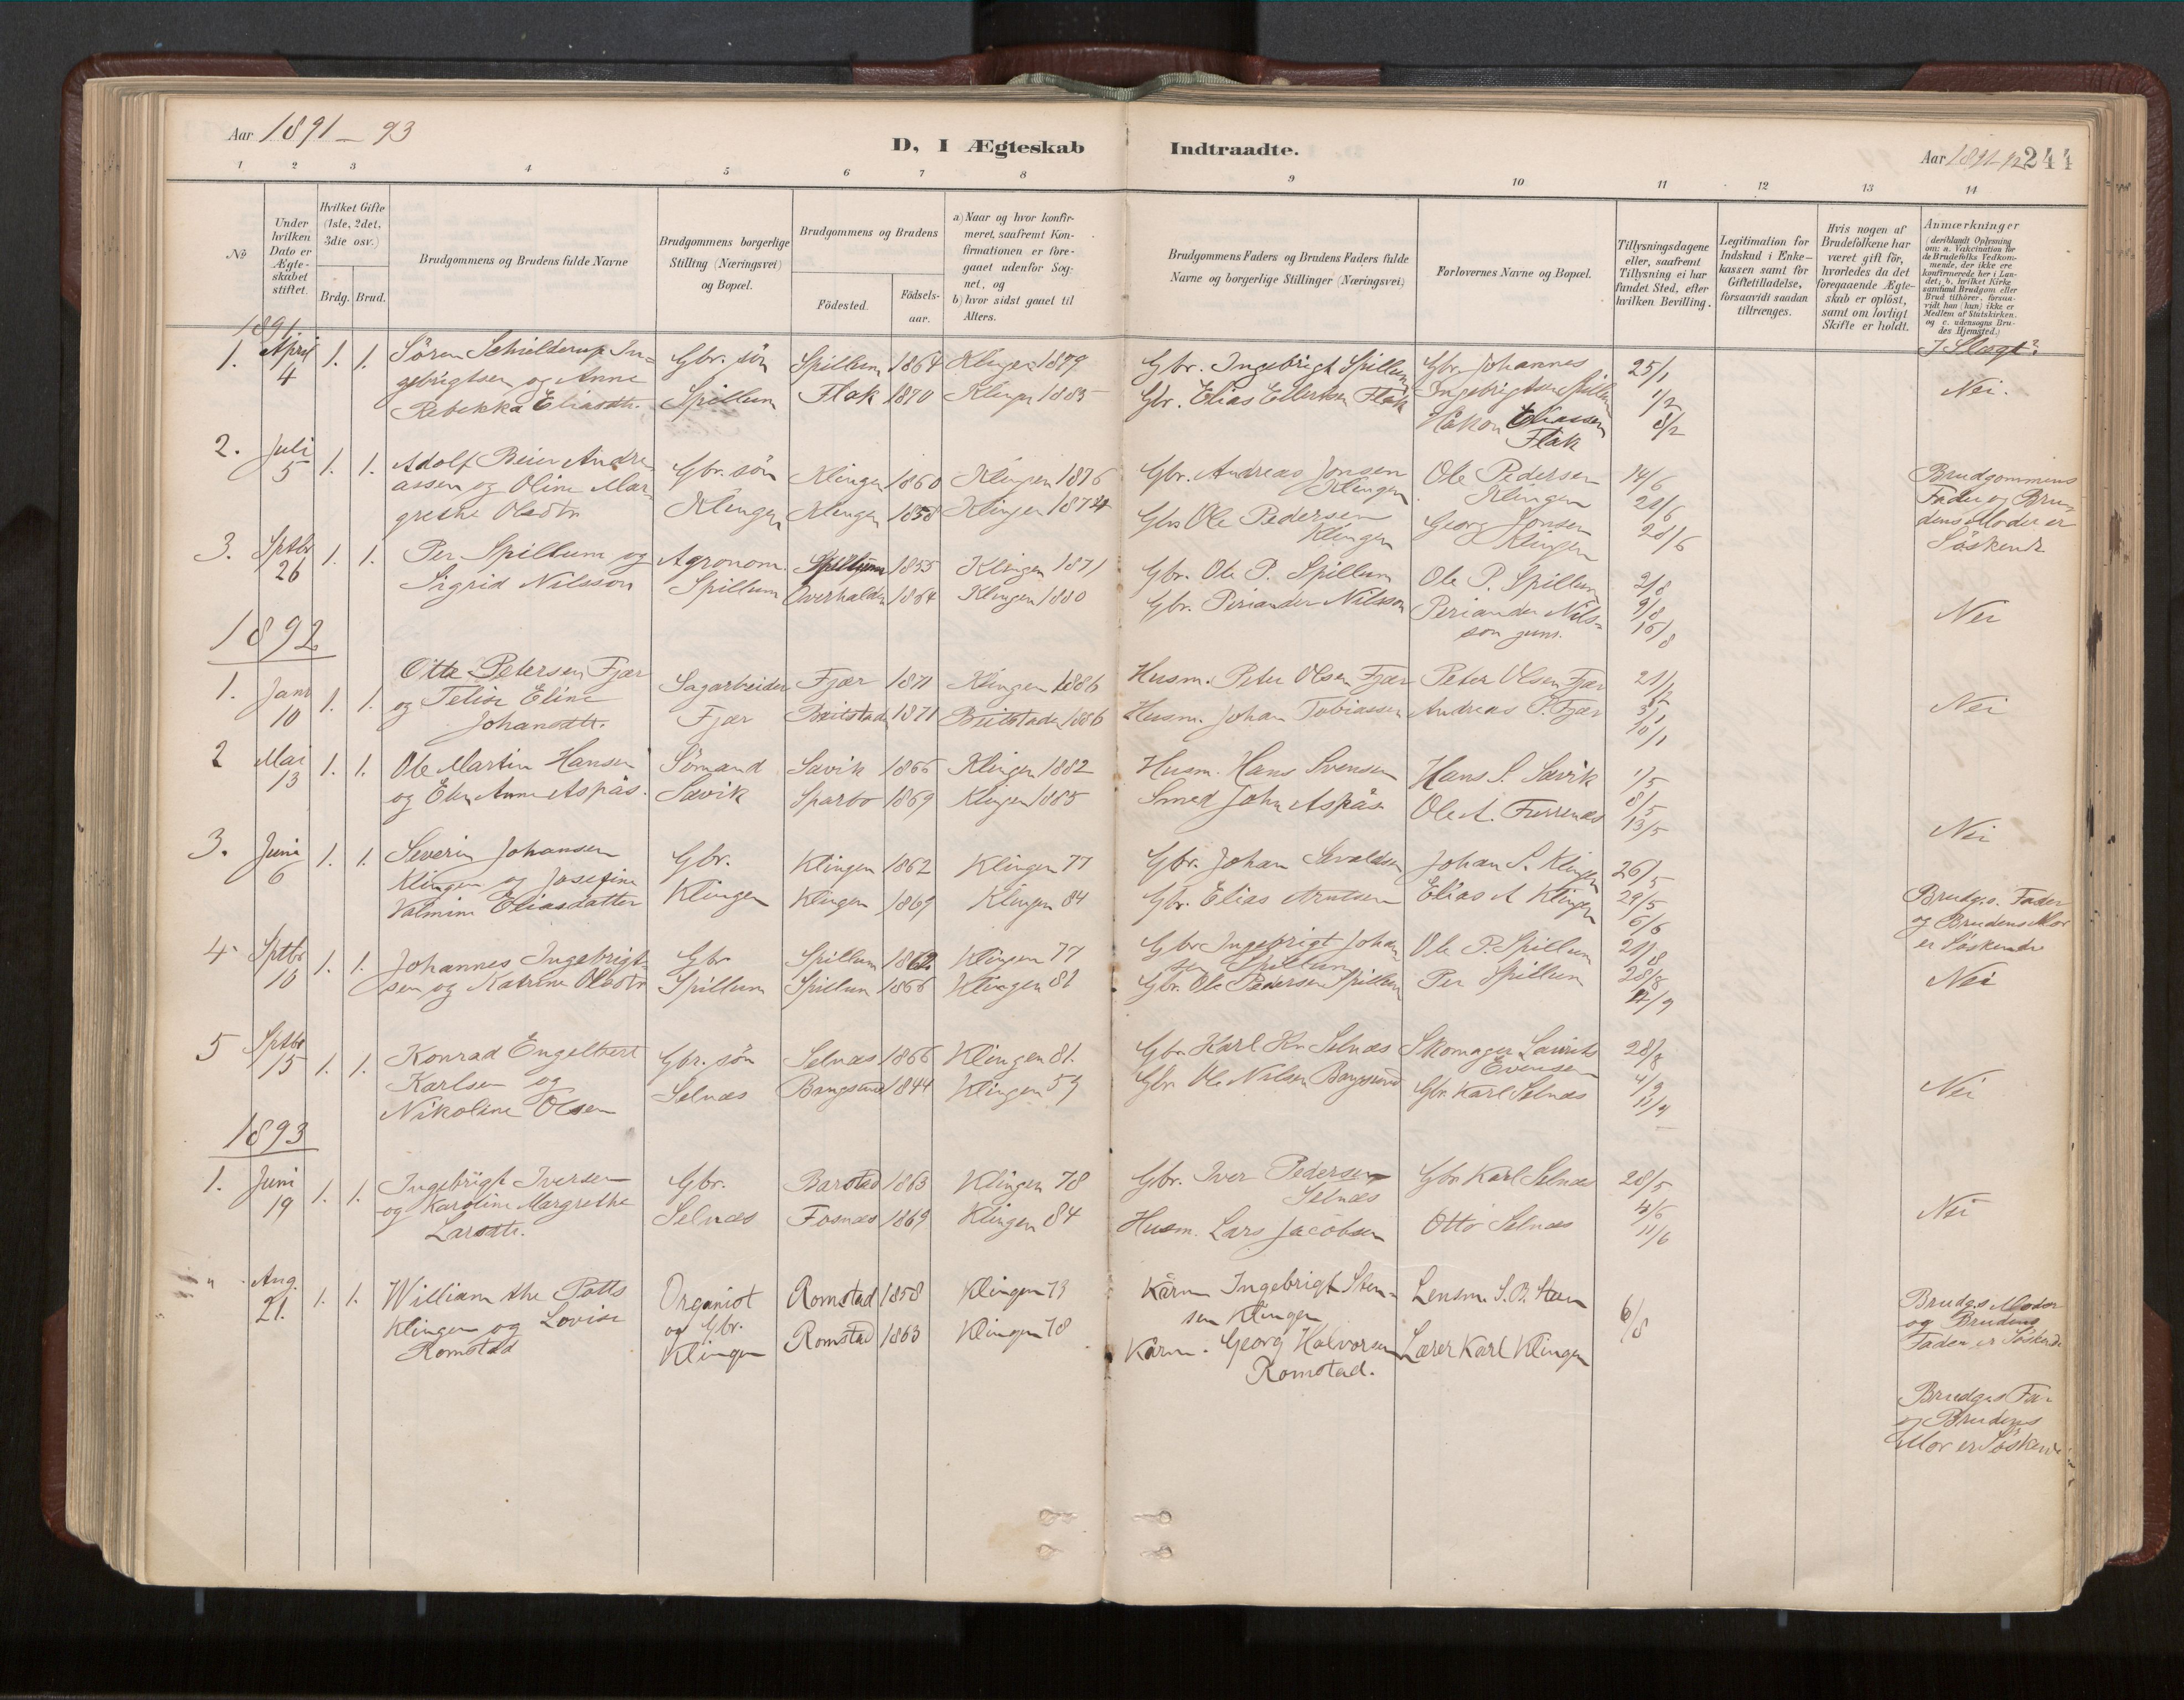 Aar 1891-93
D, I Ægteskab Indtraadte.
Aar 1891-92 244
1 2 3 4 5 6 7 8 9 10 11 12 13 14
No
Under hvilken Dato er Ægteskabet stiftet.
Hvilket Gifte (1ste, 2det, 3die osv.)
Brdg. Brud.
Brudgommens og Brudens fulde Navne
Brudgommens borgerlige Stilling (Næringsvei) og Bopæl.
Brudgommens og Brudens
Födested.
Födsels-aar.
a) Naar og hvor konfirmeret, saafremt Konfirmationen er foregaaet udenfor Sognet, og
b) hvor sidst gaaet til Alters.
Brudgommens Faders og Brudens Faders fulde Navne og borgerlige Stillinger (Næringsvei)
Forlovernes Navne og Bopæl.
Tillysningsdagene eller, saafremt Tillysning ei har fundet Sted, efter hvilken Bevilling.
Legitimation for Indskud i Enkekassen samt for Giftetilladelse, forsaavidt saadan tiltrænges.
Hvis nogen af Brudefolkene har været gift för, hvorledes da det foregaaende Ægteskab er oplöst, samt om lovligt Skifte er holdt.
Anmærkninger
(deriblandt Oplysning om: a. Vakcination for de Brudefolks Vedkommende, der ikke ere konfirmerede her i Landet; b. hvilket Kirkesamfund Brudgom eller Brud tilhörer, forsaavidt han (hun) ikke er Medlem af Statskirken. og c. udensogns Brudes Hjemsted.)
I Slægt?
1891
1. April 4 1. 1. Sören Schielderup Ingebrigtsen og Anne Rebekka Eliasdtr.
Gbr. sön Spillum
Spillum 1864 Klingen 1879
Flak 1870 Klingen 1885
Gbr. Ingebrigt Spillum
Gbr. Elias Ellertsen Flak
Gbr. Johannes Ingebrigtsen Spillum
Håkon Eliassen Flak
25/1 1/2 8/2
Nei.
2. Juli 5 1. 1. Adolf Beier Andreassen og Oline Margrethe Olsdtr
Gbr. sön Klingen
Klingen 1860 Klingen 1876
Klingen 1858 Klingen 1874
Gbr. Andreas Jonsen Klingen
Gbr. Ole Pedersen Klingen
Ole Pedersen Klingen
Georg Jonsen Klingen
14/6 21/6 28/6
Brudgommens Fader og Brudens Moder er Söskende
3. Sptbr 26 1. 1. Per Spillum og Sigrid Nilsson
Agronom. Spillum
Spillum 1855 Klingen 1871
Overhalden 1864 Klingen 1880
Gbr. Ole P. Spillum
Gbr. Periander Nilsson
Ole P. Spillum
Periander Nilsson juns.
2/8 9/8 16/8
Nei
1892
1. Janr 10 1. 1. Otte Petersen Fjær og Telise Eline Johansdtr.
Sagarbeider Fjær
Fjær 1871 Klingen 1886
Beitstad 1871 Beitstaden 1886
Husm. Peter Olsen Fjær
Husm. Johan Tobiassen
Peter Olsen Fjær
Andreas P. Fjær
21/12 3/1 10/1
Nei
2 Mai 13 1. 1. Ole Martin Hansen og Elen Anne Aspås.
Sömand Sævik
Sævik 1866 Klingen 1882
Sparbo 1869 Klingen 1885
Husm. Hans Svensen
Smed John Aspås
Hans S. Sævik
Ole A. Furrenes
1/5 8/5 13/5
Nei
3. Juni 6 1. 1. Severin Johansen Klingen og Josefine Valmine Eliasdatter
Gbr. Klingen
Klingen 1862 Klingen 77
Klingen 1869 Klingen 84
Gbr. Johan Sevaldsen
Gbr. Elias Arntsen
Johan S. Klingen
Elias A Klingen
26/5 29/5 6/6
Brudg.s. Fader og Brudens Mor er Söskende
4 Sptbr 10 1. 1. Johannes Ingebrigtsen og Katrine Olsdtr
Gbr Spillum
Spillum 1862 Klingen 77
Spillum 1866 Klingen 81
Gbr Ingebrigt Johansen Spillum
Gbr. Ole Pedersen Spillum
Ole P. Spillum
Per Spillum
21/8 28/8 4/9
Nei
5 Sptbr 15 1. 1. Konrad Engelbert Karlsen og Nikoline Olsen
Gbr. sön Selnæs
Selnæs 1866 Klingen 81.
Bangsund 1844 Klingen 59
Gbr. Karl Kr. Selnæs
Gbr. Ole Nilsen Bangsund
Skomager Laurits Evensen
Gbr. Karl Selnæs
28/8 4/9 11/9
Nei
1893
1. Juni 19 1. 1. Ingebrigt Iversen og Karoline Margrethe Larsdtr.
Gbr. Selnæs
Barstad 1863 Klingen 78
Fosnæs 1869 Klingen 84
Gbr. Iver Pedersen Selnæs
Husm. Lars Jacobsen
Gbr Karl Selnæs
Otto Selnæs
28/5 4/6 11/6
Nei
" Aug. 21. 1. 1. William the Potts Klingen og Lovise Romstad
Organist og Gbr. Klingen
Romstad 1858 Klingen 73
Romstad 1863 Klingen 78
Kårm Ingebrigt Stensen Klingen
Kårm. Georg Halvorsen Romstad.
Lensm. S. B.
Lærer Karl Klingen
6/8
Brudg.s Moder og Brudens Fader er Söskende
Brudg.s Far og Brudens Mor er Söskende